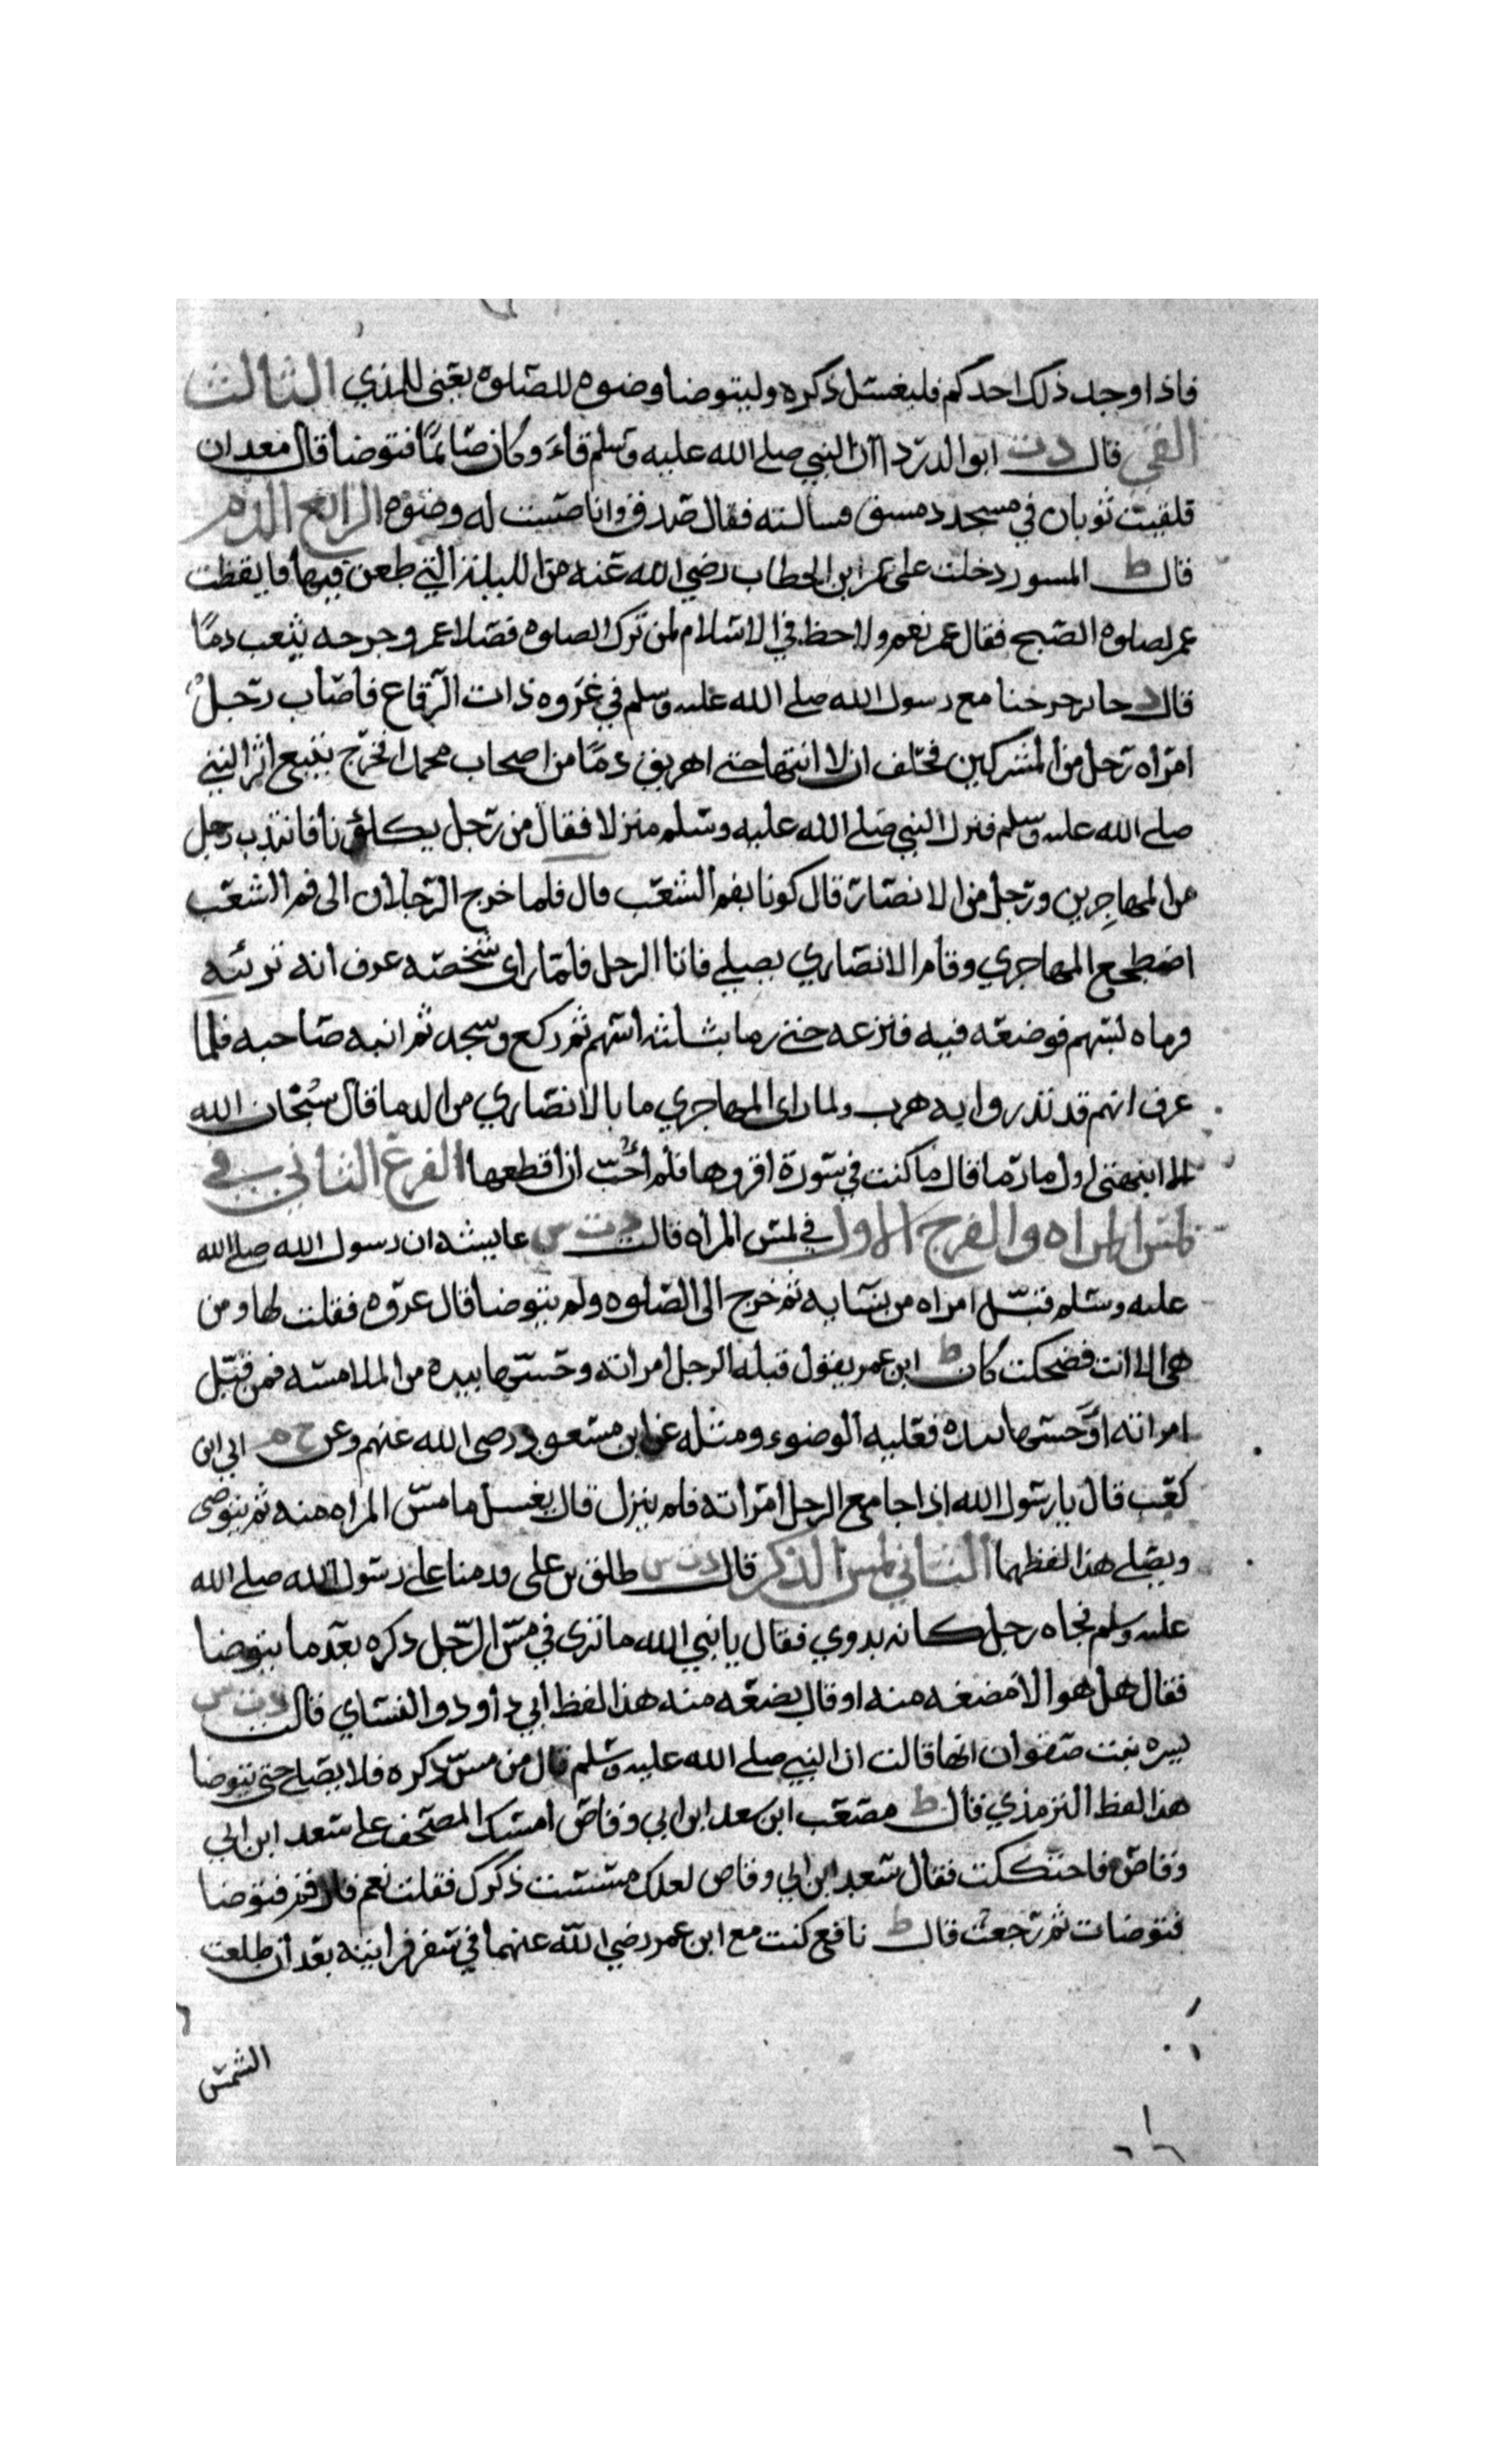 فاذا وجد ذلك احدكم فليغسل ذكره وليتوضا وضوه للصلوه يعني للمذي الثالث
القي قال د ت ابو الدردا ان النبي صلى الله عليه وسلم قاء وكان صائما فتوضا قال معدان
فلقيت ثوبان في مسجد دمسق فسالته فقال صدق وانا صببت له وضوه الرابع الدم
قال ط المسور دخلت على عمر ابن الخطاب رضي الله عنه من الليلة التي طعن فيها فايقظت
عمر لصلوه الصبح فقال عمر نعم ولا حظ في الاسلام لمن ترك الصلوه فصلا عمر وجرحه يثعب دما
قال د جابر خرجنا مع رسول الله صلى الله عليه وسلم في غزوه ذات الرقاع فاصاب رجل
امراه رجل من المشركين فحلف ان لا انتها حتى اهريق دما من اصحاب محمد فخرج يتبع اثر النبي
صلى الله عليه وسلم فنزل النبي صلى الله عليه وسلم منزلا فقال من رجل يكلؤنا فانتدب رجل
من المهاجرين ورجل من الانصار قال كونا بفم الشعب قال فلما خرج الرجلان الى فم الشعب
اضطجع المهاجري وقام الانصاري يصلي فاتا الرجل فلما راى شخصه عرف انه
فرماه بسهم فوضعه فيه فنزعه حتى رماه بثلثه اسهم ثم ركع وسجد ثم انبه صاحبه فلما
عرف انهم قد نذروا به هرب ولما راى المهاجري ما بالانصاري من الدما قال سبحان الله
الا انبهتني اول ما رما قال كنت في سورة اقروها فلم احب ان اقطعها الفرع الثاني في
لمس المراه والفرج الاول في لمس المراه قالت د ت س عايشه ان رسول الله صلى الله
عليه وسلم قبل امراه من نسايه ثم خرج الى الصلوه ولم يتوضا قال عروه فقلت لها ومن
هي الا انت فضحكت كان ط ابن عمر يقول قبله الرجل امراته وجسها بيده من الملامسه فمن قبل
امراته او جسها بيده فعليه الوضوء ومثله عن ابن مسعود رضي الله عنهم وعن خ م ابي ابن
كعب قال يا رسول الله اذا جامع الرجل امراته فلم ينزل قال يغسل ما مس المراه منه ثم يتوضى
ويصلي هذا لفظهما الثاني لمس الذكر قال د ت س طلق بن علي قدمنا على رسول الله صلى الله
عليه وسلم فجاه رجل كانه بدوي فقال يا نبي الله ما ترى في مس الرجل ذكره بعد ما يتوضا
فقال هل هو الا مضغه منه او قال بضعه منه هذا لفظ ابي داود والنساي قالت د ت س
بسره بنت صفوان انها قالت ان النبي صلى الله عليه وسلم قال من مس ذكره فلا يصلي حتى يتوضا
هذا لفظ الترمذي قال ط مصعب ابن سعد ابن ابي وقاص امسك المصحف على سعد ابن ابي
وقاص فاحتككت فقال سعد ابن ابي وقاص لعلك مسست ذكرك فقلت نعم قال قم فتوضا
فتوضات ثم رجعت قال ط نافع كنت مع ابن عمر رضي الله عنهما في سفر فرايته بعد ان طلعت
الشمس